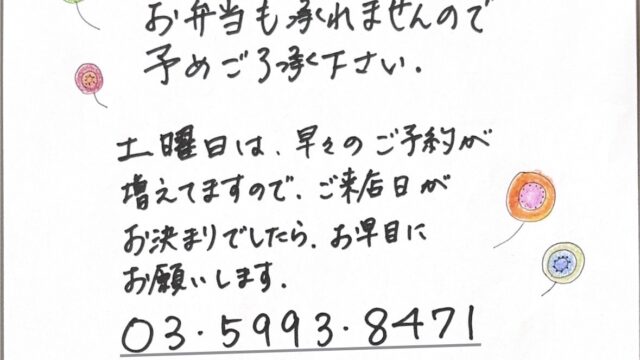 お弁当も承れませんので
予めご了承く下さい.
土曜日は、早々のご予約が
増えてますので、ご来店日が
お決まりでしたら、お早目に
お願いします.
03・5993・8471